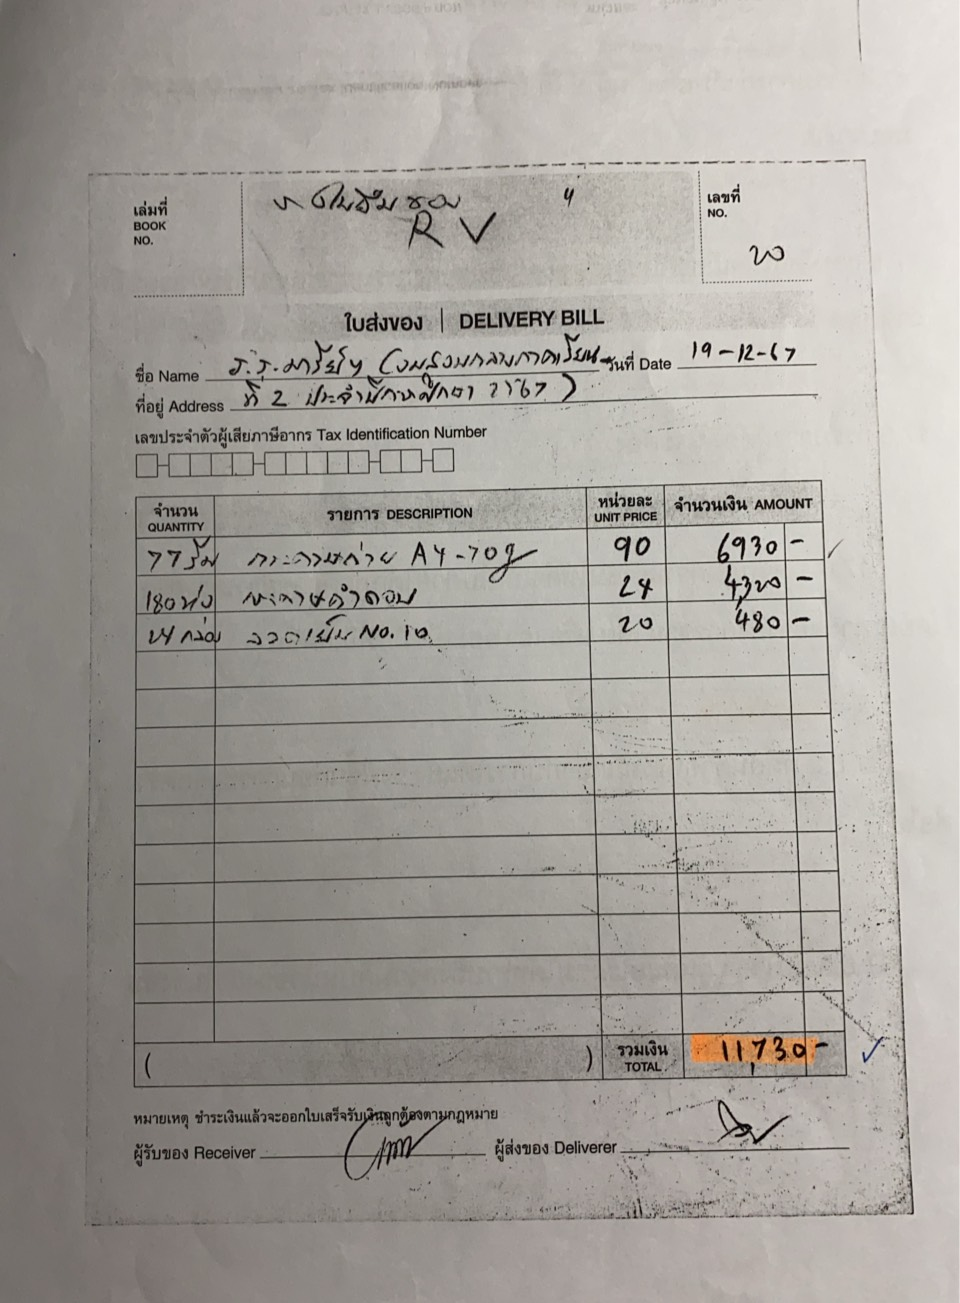 เล่มที่
BOOK
NO.
R V
เลขที่
NO.
20
ใบส่งของ | DELIVERY BILL
ชื่อ Name ร.ร. วันที่ Date 19-12-67
ที่อยู่ Address ที่ 2 ประจำปีการศึกษา 2567 )
เลขประจำตัวผู้เสียภาษีอากร Tax Identification Number
จำนวน รายการ DESCRIPTION หน่วยละ จำนวนเงิน AMOUNT
QUANTITY UNIT PRICE
77 รีม กระดาษถ่าย A4-70g 90 6930 -
180 ห่อ กระดาษคำตอบ 24 4320 -
24 กล่อง ลวดเย็บ No. 10 20 480 -
( ) รวมเงิน 11,730 -
TOTAL
หมายเหตุ ชำระเงินแล้วจะออกใบเสร็จรับเงินถูกต้องตามกฎหมาย
ผู้รับของ Receiver ผู้ส่งของ Deliverer